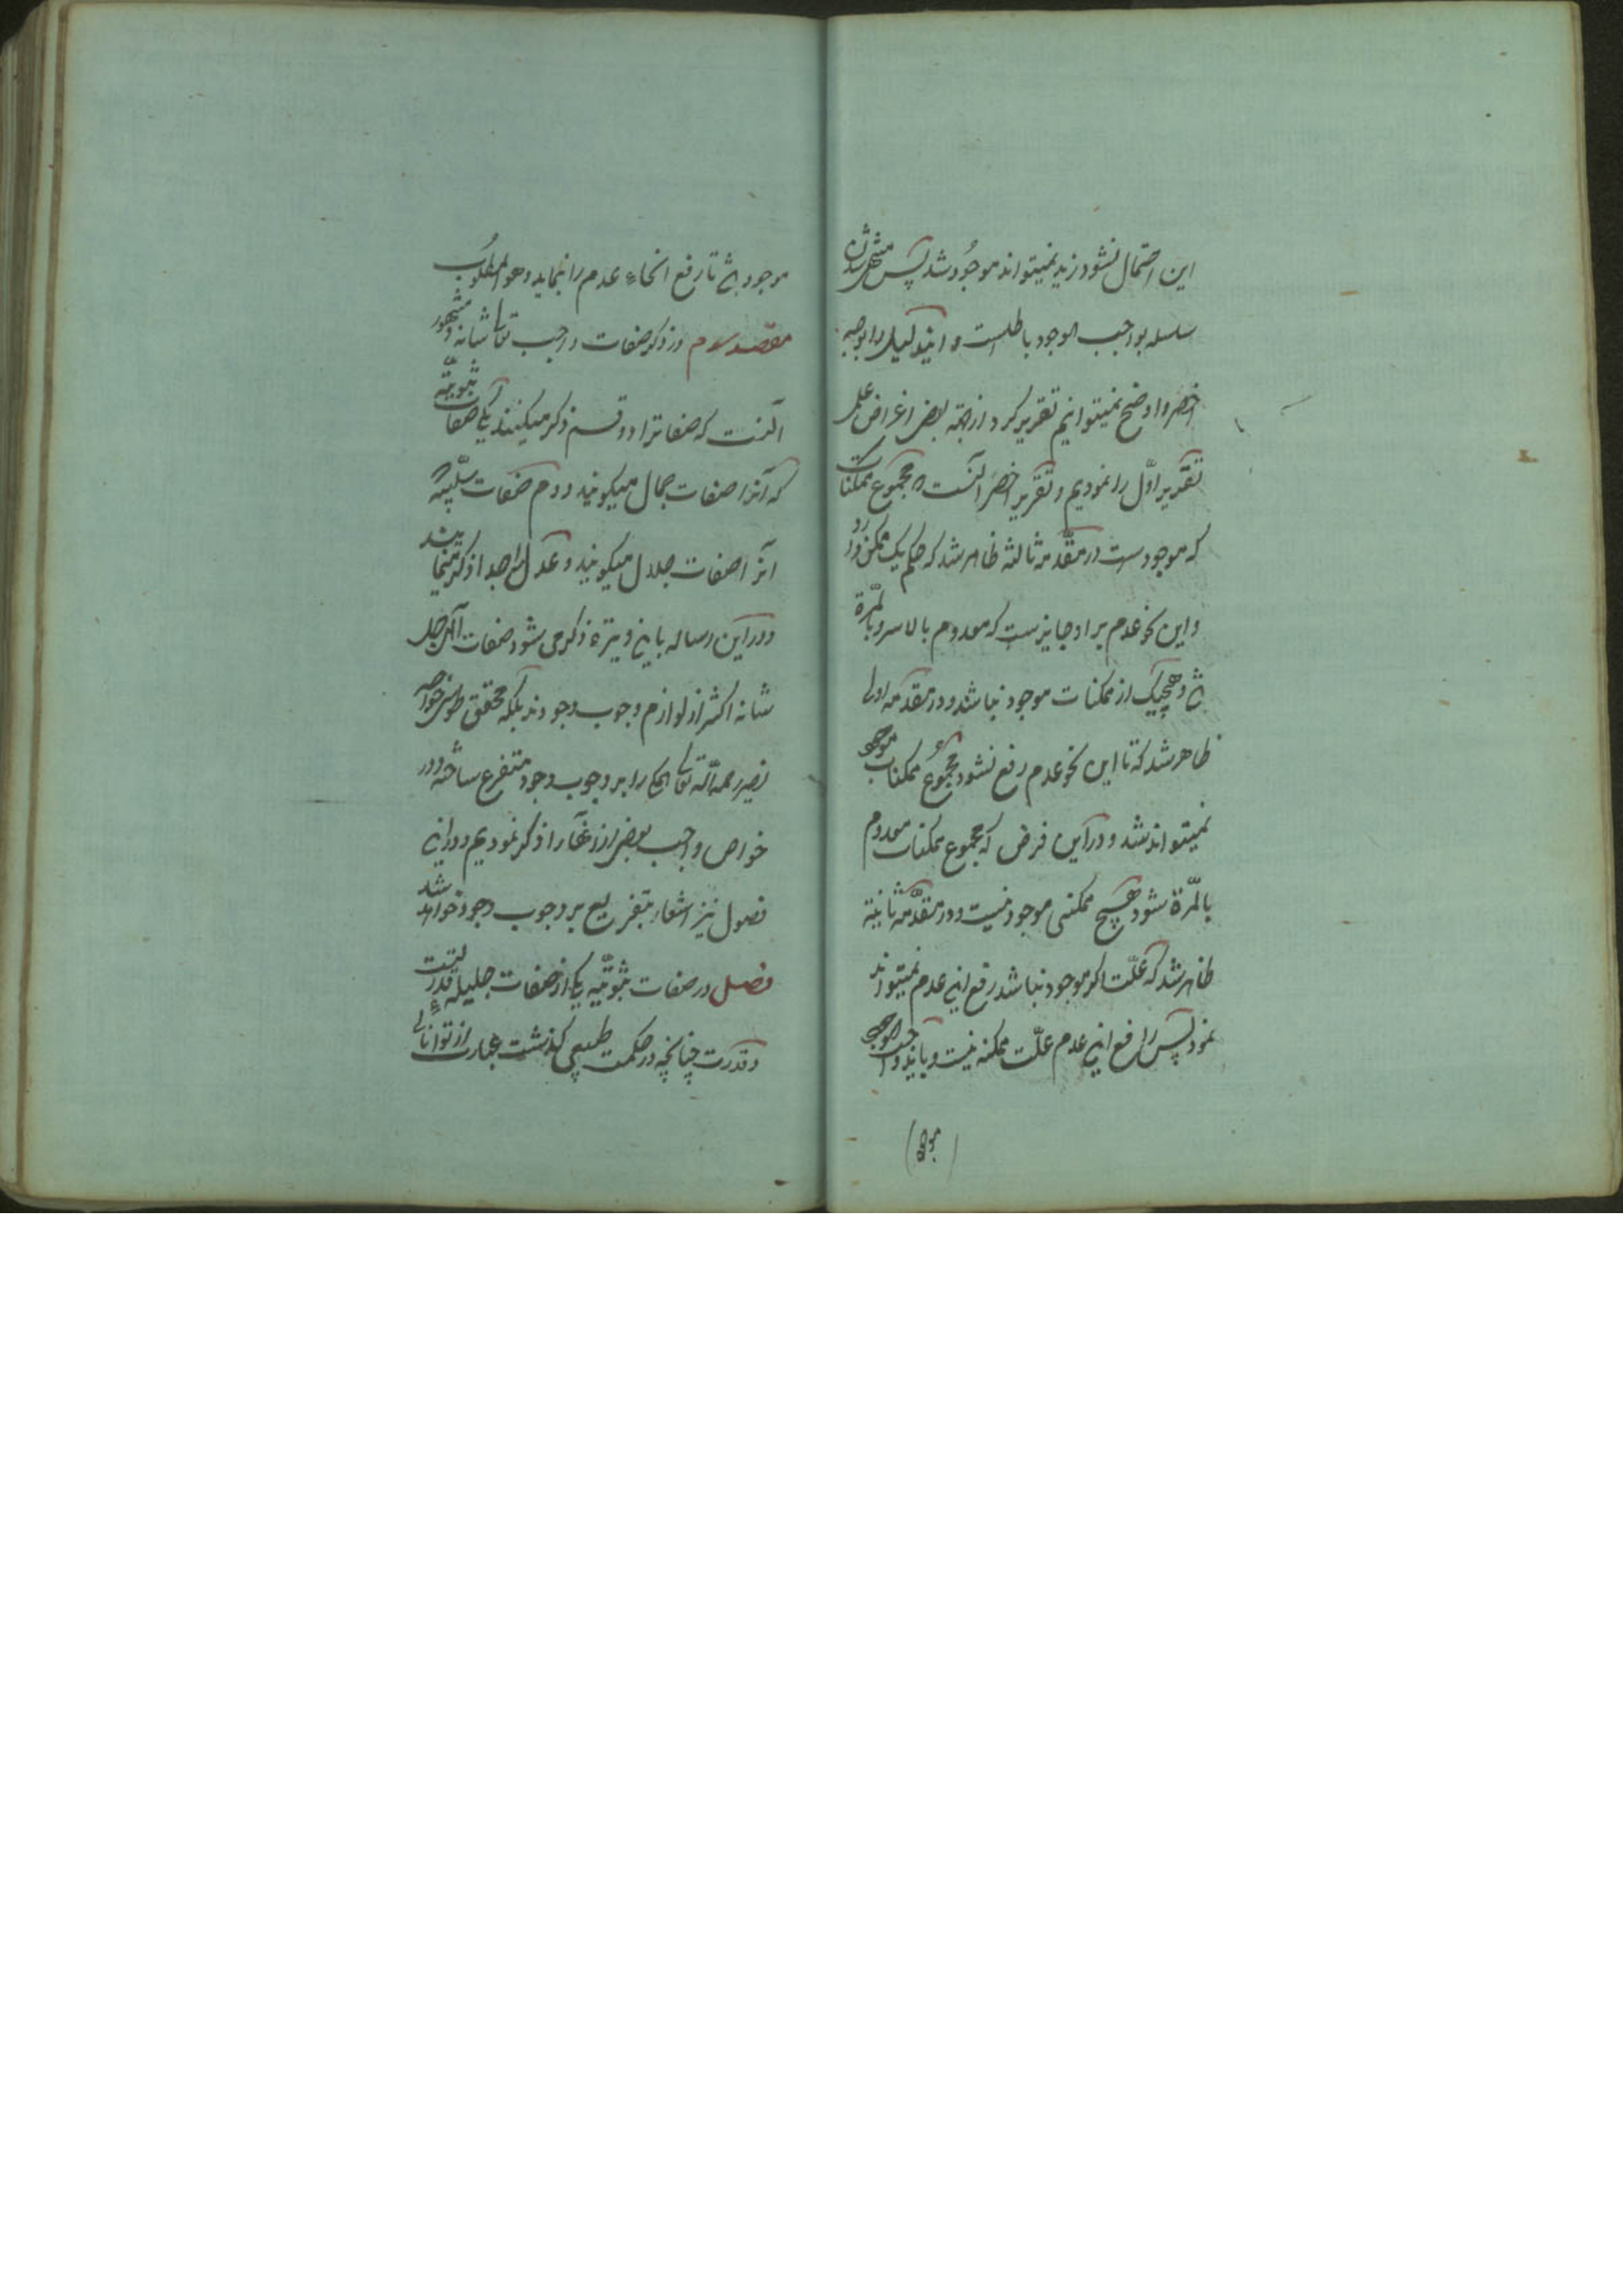 این احتمال نشود زید نمیتواند موجود شد پس منتهی نشدن
سلسله بواجب الوجود باطلست و این دلیل را بوجه
اخصر و اوضح نمیتوانیم تقریر کرد از جهة بعض اغراض علمی
تقریر اول را نمودیم و تقریر اخصر آنست که مجموع ممکنات
که موجودست در مقدمه ثالثه ظاهر شد که حکم یک ممکن دارد
و این نحو عدم بر او جایزست که معدوم بالاسر و بالمرة
شود و هیچیک از ممکنات موجود نباشد و در مقدمه اولی
ظاهر شد که تا این نحو عدم رفع نشود مجموع ممکنات موجود
نمیتواند شد و در این فرض که مجموع ممکنات معدوم
بالمرة شود هیچ ممکنی موجود نیست و در مقدمه ثانیه
ظاهر شد که علت اگر موجود نباشد رفع این عدم نمیتواند
نمود پس رافع این عدم علت ممکنه نیست و باید واجب الوجود
موجود
موجود باشد تا رفع انحاء عدم را نماید و هو المطلوب
مقصد سوم در ذکر صفات واجب تعالی شانه و مشهور
آنست که صفاترا دو قسم ذکر میکنند یکی صفات ثبوتیه
که آنرا صفات جمال میگویند دوم صفات سلبیه که
آنرا صفات جلال میگویند و عدل را جدا ذکر مینمایند
و در این رساله باین وتیره ذکر می شود صفات الهی جل
شانه اکثر از لوازم وجوب وجودند بلکه محقق طوسی خواجه
نصیر رحمه الله تعالی همه را بر وجوب وجود متفرع ساخته و در
خواص واجب بعضی از آنها را ذکر نمودیم و در این
فصول نیز اشعار بتفریع بر وجوب وجود خواهد شد
فصل در صفات ثبوتیه یکی از صفات جلیله قدرتست
و قدرت چنانچه در حکمت طبیعی گذشت عبارت از توانائی